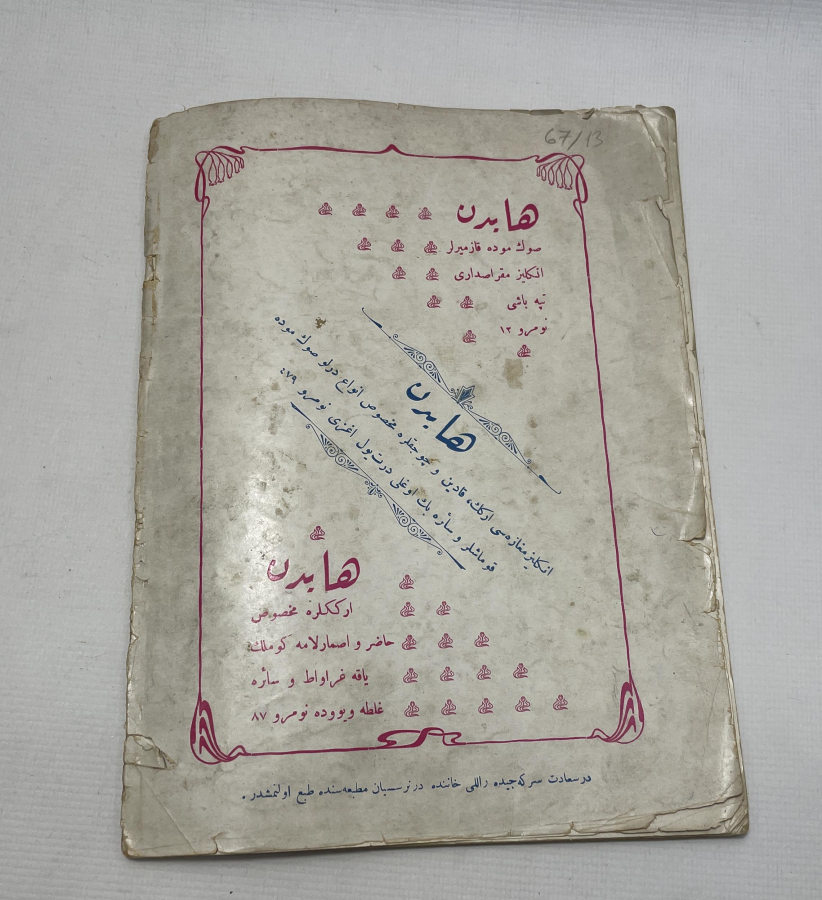 67/13
هايدن
صوك موده قازميرلر
انكليز مقراصدارى
تپه باشى
نومرو ١٢
هايدن
انكليز مغازه‌سى اركك، قادين و چوجقلره مخصوص انواع درلو صوك موده
قوماشلر و سائره بك اوغلى درت يول اغزى نومرو ٤٧٩
هايدن
ارككلره مخصوص
حاضر و اصمارلامه كوملك
ياقه غراواط و سائره
غلطه ويووده نومرو ٨٧
درسعادت سركه‌جيده راللى خاننده در نرسسيان مطبعه‌سنده طبع اولنمشدر.